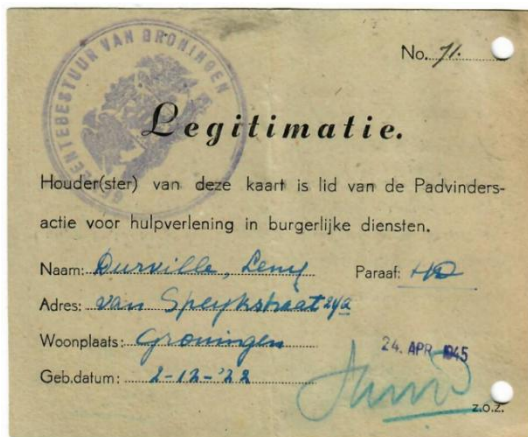 No. 71.
GEMEENTEBESTUUR VAN GRONINGEN
Legitimatie.
Houder(ster) van deze kaart is lid van de Padvinders-
actie voor hulpverlening in burgerlijke diensten.
Naam: Durville, Leny Paraaf: HD
Adres: van Speykstraat 24a
Woonplaats: Groningen
24. APR 1945
Geb.datum: 2-12-'22
z.o.z.